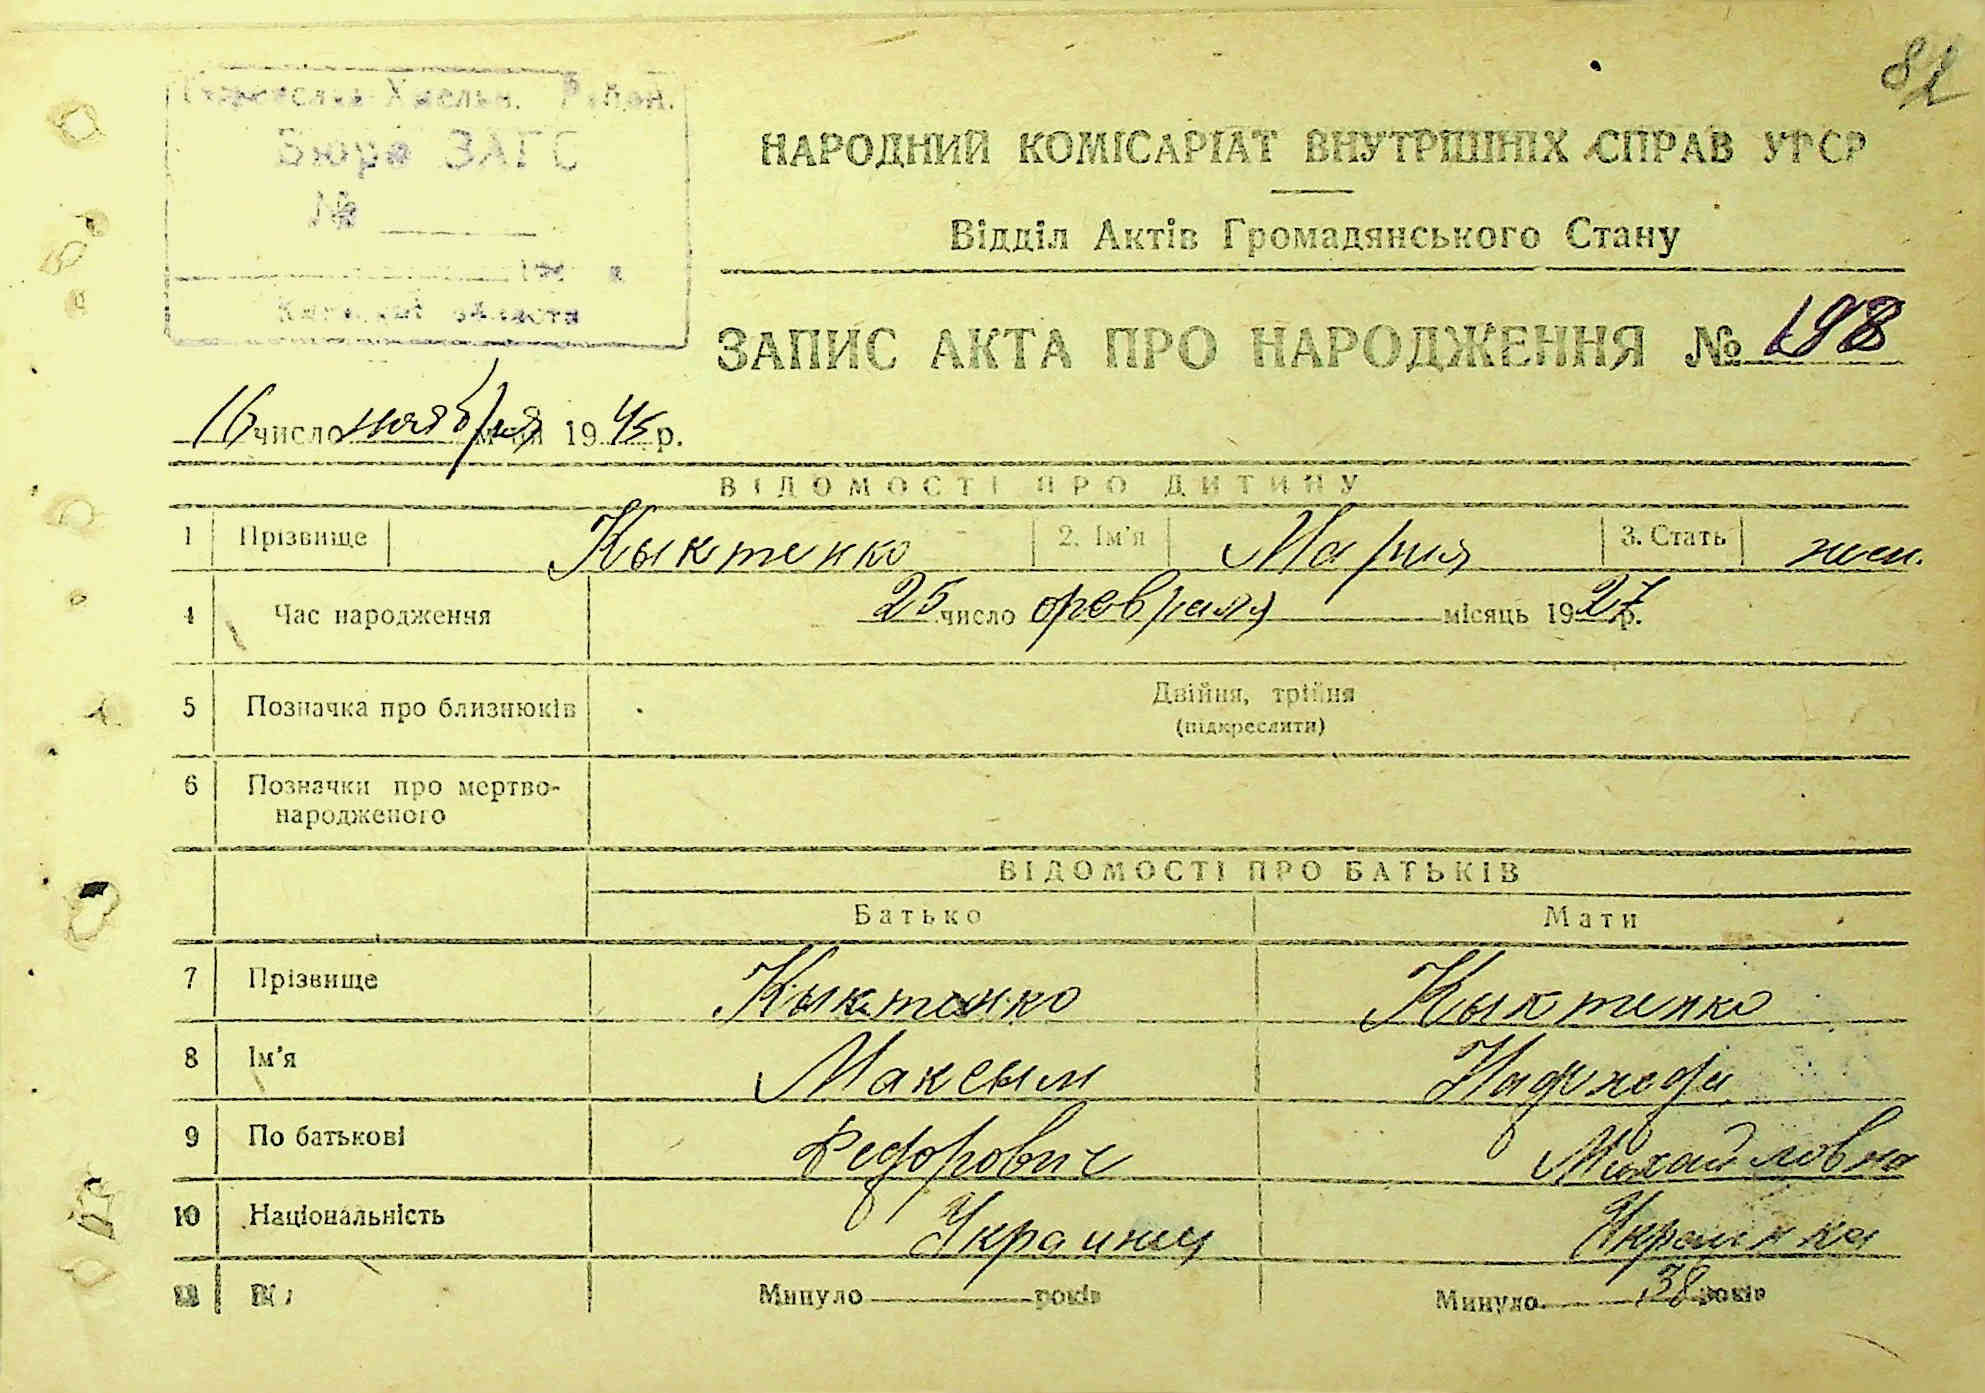 82
Переяслав-Хмельн. Район.
Бюро ЗАГС
№
Київської області
НАРОДНИЙ КОМІСАРІАТ ВНУТРІШНІХ СПРАВ УРСР
Відділ Актів Громадянського Стану
ЗАПИС АКТА ПРО НАРОДЖЕННЯ № 198
16 число ноября м-ця 1945 р.
ВІДОМОСТІ ПРО ДИТИНУ
1 Прізвище Кыктенко 2. Ім'я Мария 3. Стать жен.
4 Час народження 25 число февраля місяць 1927 р.
5 Позначка про близнюків Двійня, трійня
(підкреслити)
6 Позначки про мертво-
народженого
ВІДОМОСТІ ПРО БАТЬКІВ
Батько Мати
7 Прізвище Кыктенко Кыктенко
8 Ім'я Максым Надежда
9 По батькові Федорович Михайловна
10 Національність Украинец Украинка
11 Вік Минуло років Минуло 38 років